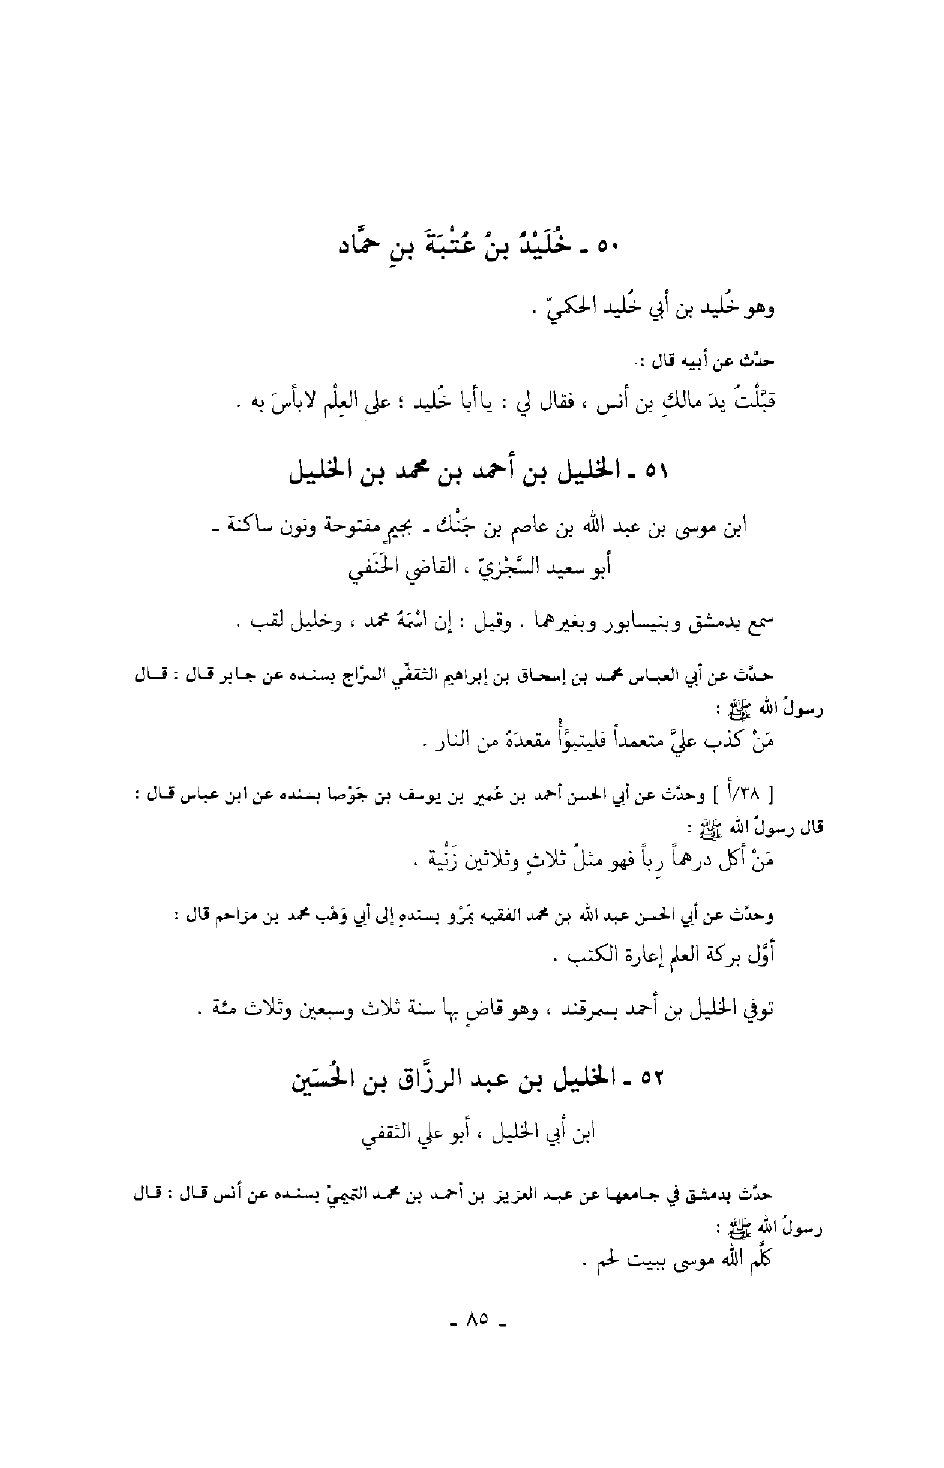 ٥٠ ـ خُلَيْدُ بنُ عُتْبَةَ بنِ حمَّاد
وهو خُليد بن أبي خُليد الحكميّ .
حدَّث عن أبيه قال :
قبَّلْتُ يدَ مالكِ بن أنس ، فقال لي : ياأبا خُليد ؛ على العِلْم لابأسَ به .
٥١ ـ الخليل بن أحمد بن محمد بن الخليل
ابن موسى بن عبد الله بن عاصم بن جَنْك ـ بجيمٍ مفتوحة ونون ساكنة ـ
أبو سعيد السَّجْزيّ ، القاضي الحَنَفي
سمع بدمشق وبنيسابور وبغيرهما . وقيل : إن اسْمَهُ محمد ، وخليل لقب .
حدَّث عن أبي العباس محمد بن إسحاق بن إبراهيم الثقفي السرَّاج بسنده عن جابر قال : قال
رسولُ الله ﷺ :
مَنْ كذب عليَّ متعمداً فليتبوَّأْ مقعدَهُ من النار .
[ ٣٨/أ ] وحدَّث عن أبي الحسن أحمد بن عُمير بن يوسف بن جَوْصا بسنده عن ابن عباس قال :
قال رسولُ الله ﷺ :
مَنْ أكل درهماً رِباً فهو مثلُ ثلاثٍ وثلاثين زَنْية .
وحدَّث عن أبي الحسن عبد الله بن محمد الفقيه بَمَرْو بسنده إلى أبي وَهْب محمد بن مزاحم قال :
أوَّل بركة العلم إعارة الكتب .
توفي الخليل بن أحمد بسمرقند ، وهو قاضٍ بها سنة ثلاث وسبعين وثلاث مئة .
٥٢ ـ الخليل بن عبد الرزَّاق بن الحُسَين
ابن أبي الخليل ، أبو علي الثقفي
حدَّث بدمشق في جامعها عن عبد العزيز بن أحمد بن محمد التميميّ بسنده عن أنس قال : قال
رسولُ الله ﷺ :
كلَّم الله موسى ببيت لحم .
ـ ٨٥ ـ